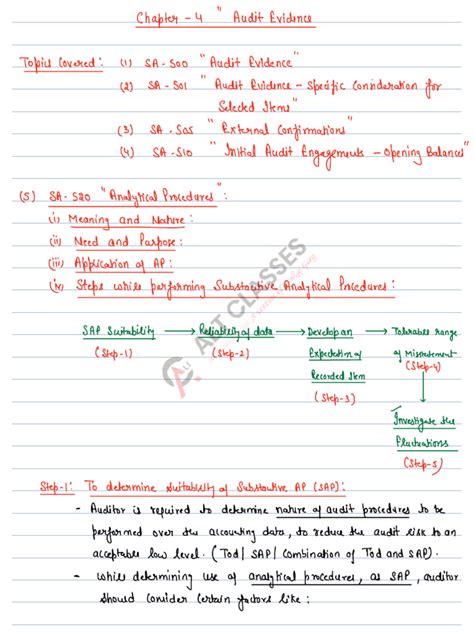 Chapter - 4 " Audit Evidence
Topics Covered: (1) SA-500 " Audit Evidence"
(2) SA-501 " Audit Evidence - Specific Consideration for
Selected Items"
(3) SA-505 " External Confirmations"
(4) SA-510 " Initial Audit Engagements - Opening Balances"
(5) SA-520 " Analytical Procedures":
(i) Meaning and Nature:
(ii) Need and Purpose:
(iii) Application of AP:
(iv) Steps while performing Substantive Analytical Procedures:
SAP Suitability → Reliability of data → Develop an → Tolerable range
(Step-1) (Step-2) Expectation of of Misstatement
Recorded Item (Step-4)
(Step-3)
Investigate the
Fluctuations
(Step-5)
ALT CLASSES
Step-1: To determine suitability of Substantive AP (SAP):
- Auditor is required to determine nature of audit procedures to be
performed over the accounting data, to reduce the audit risk to an
acceptable low level. (Tod/ SAP/ Combination of Tod and SAP).
- While determining use of analytical procedures, as SAP, auditor
should consider certain factors like: